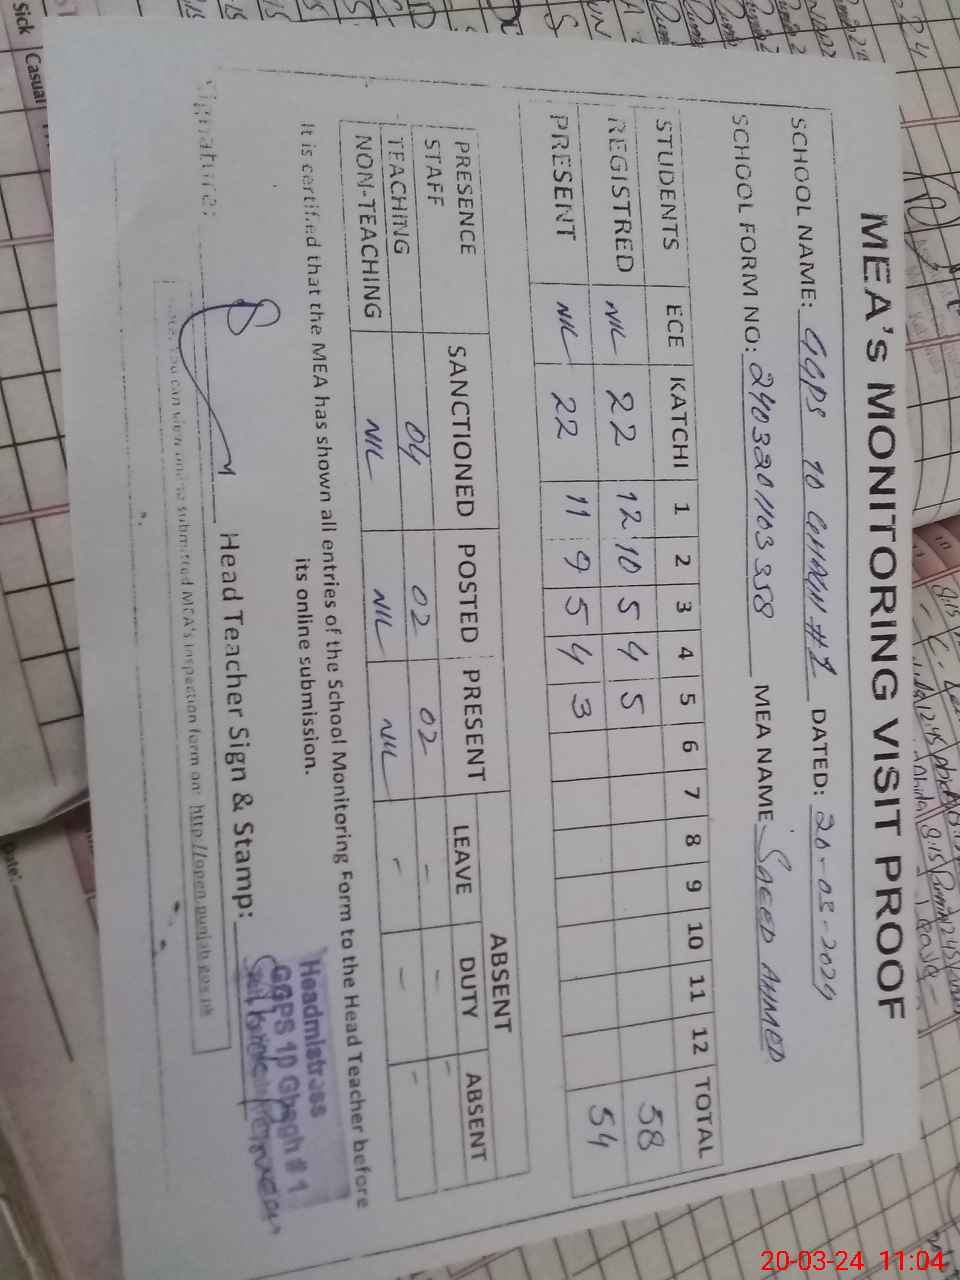 MEA's MONITORING VISIT PROOF
SCHOOL NAME: GGPS 10 GHAGH #1 DATED: 20-03-2024
SCHOOL FORM NO: 2403201103358 MEA NAME SAEED AHMED
STUDENTS ECE KATCHI 1 2 3 4 5 6 7 8 9 10 11 12 TOTAL
REGISTRED NIL 22 12 10 5 4 5 58
PRESENT NIL 22 11 9 5 4 3 54
PRESENCE SANCTIONED POSTED PRESENT ABSENT
STAFF LEAVE DUTY ABSENT
TEACHING 04 02 02 - - -
NON-TEACHING NIL NIL NIL - - -
It is certified that the MEA has shown all entries of the School Monitoring Form to the Head Teacher before
its online submission.
Signature: Head Teacher Sign & Stamp:
Headmistress
GGPS 10 Ghagh # 1
Note: You can view online submitted MEA's inspection form on: http://open.punjab.gov.pk
Sick Casual
Date:
20-03-24 11:04